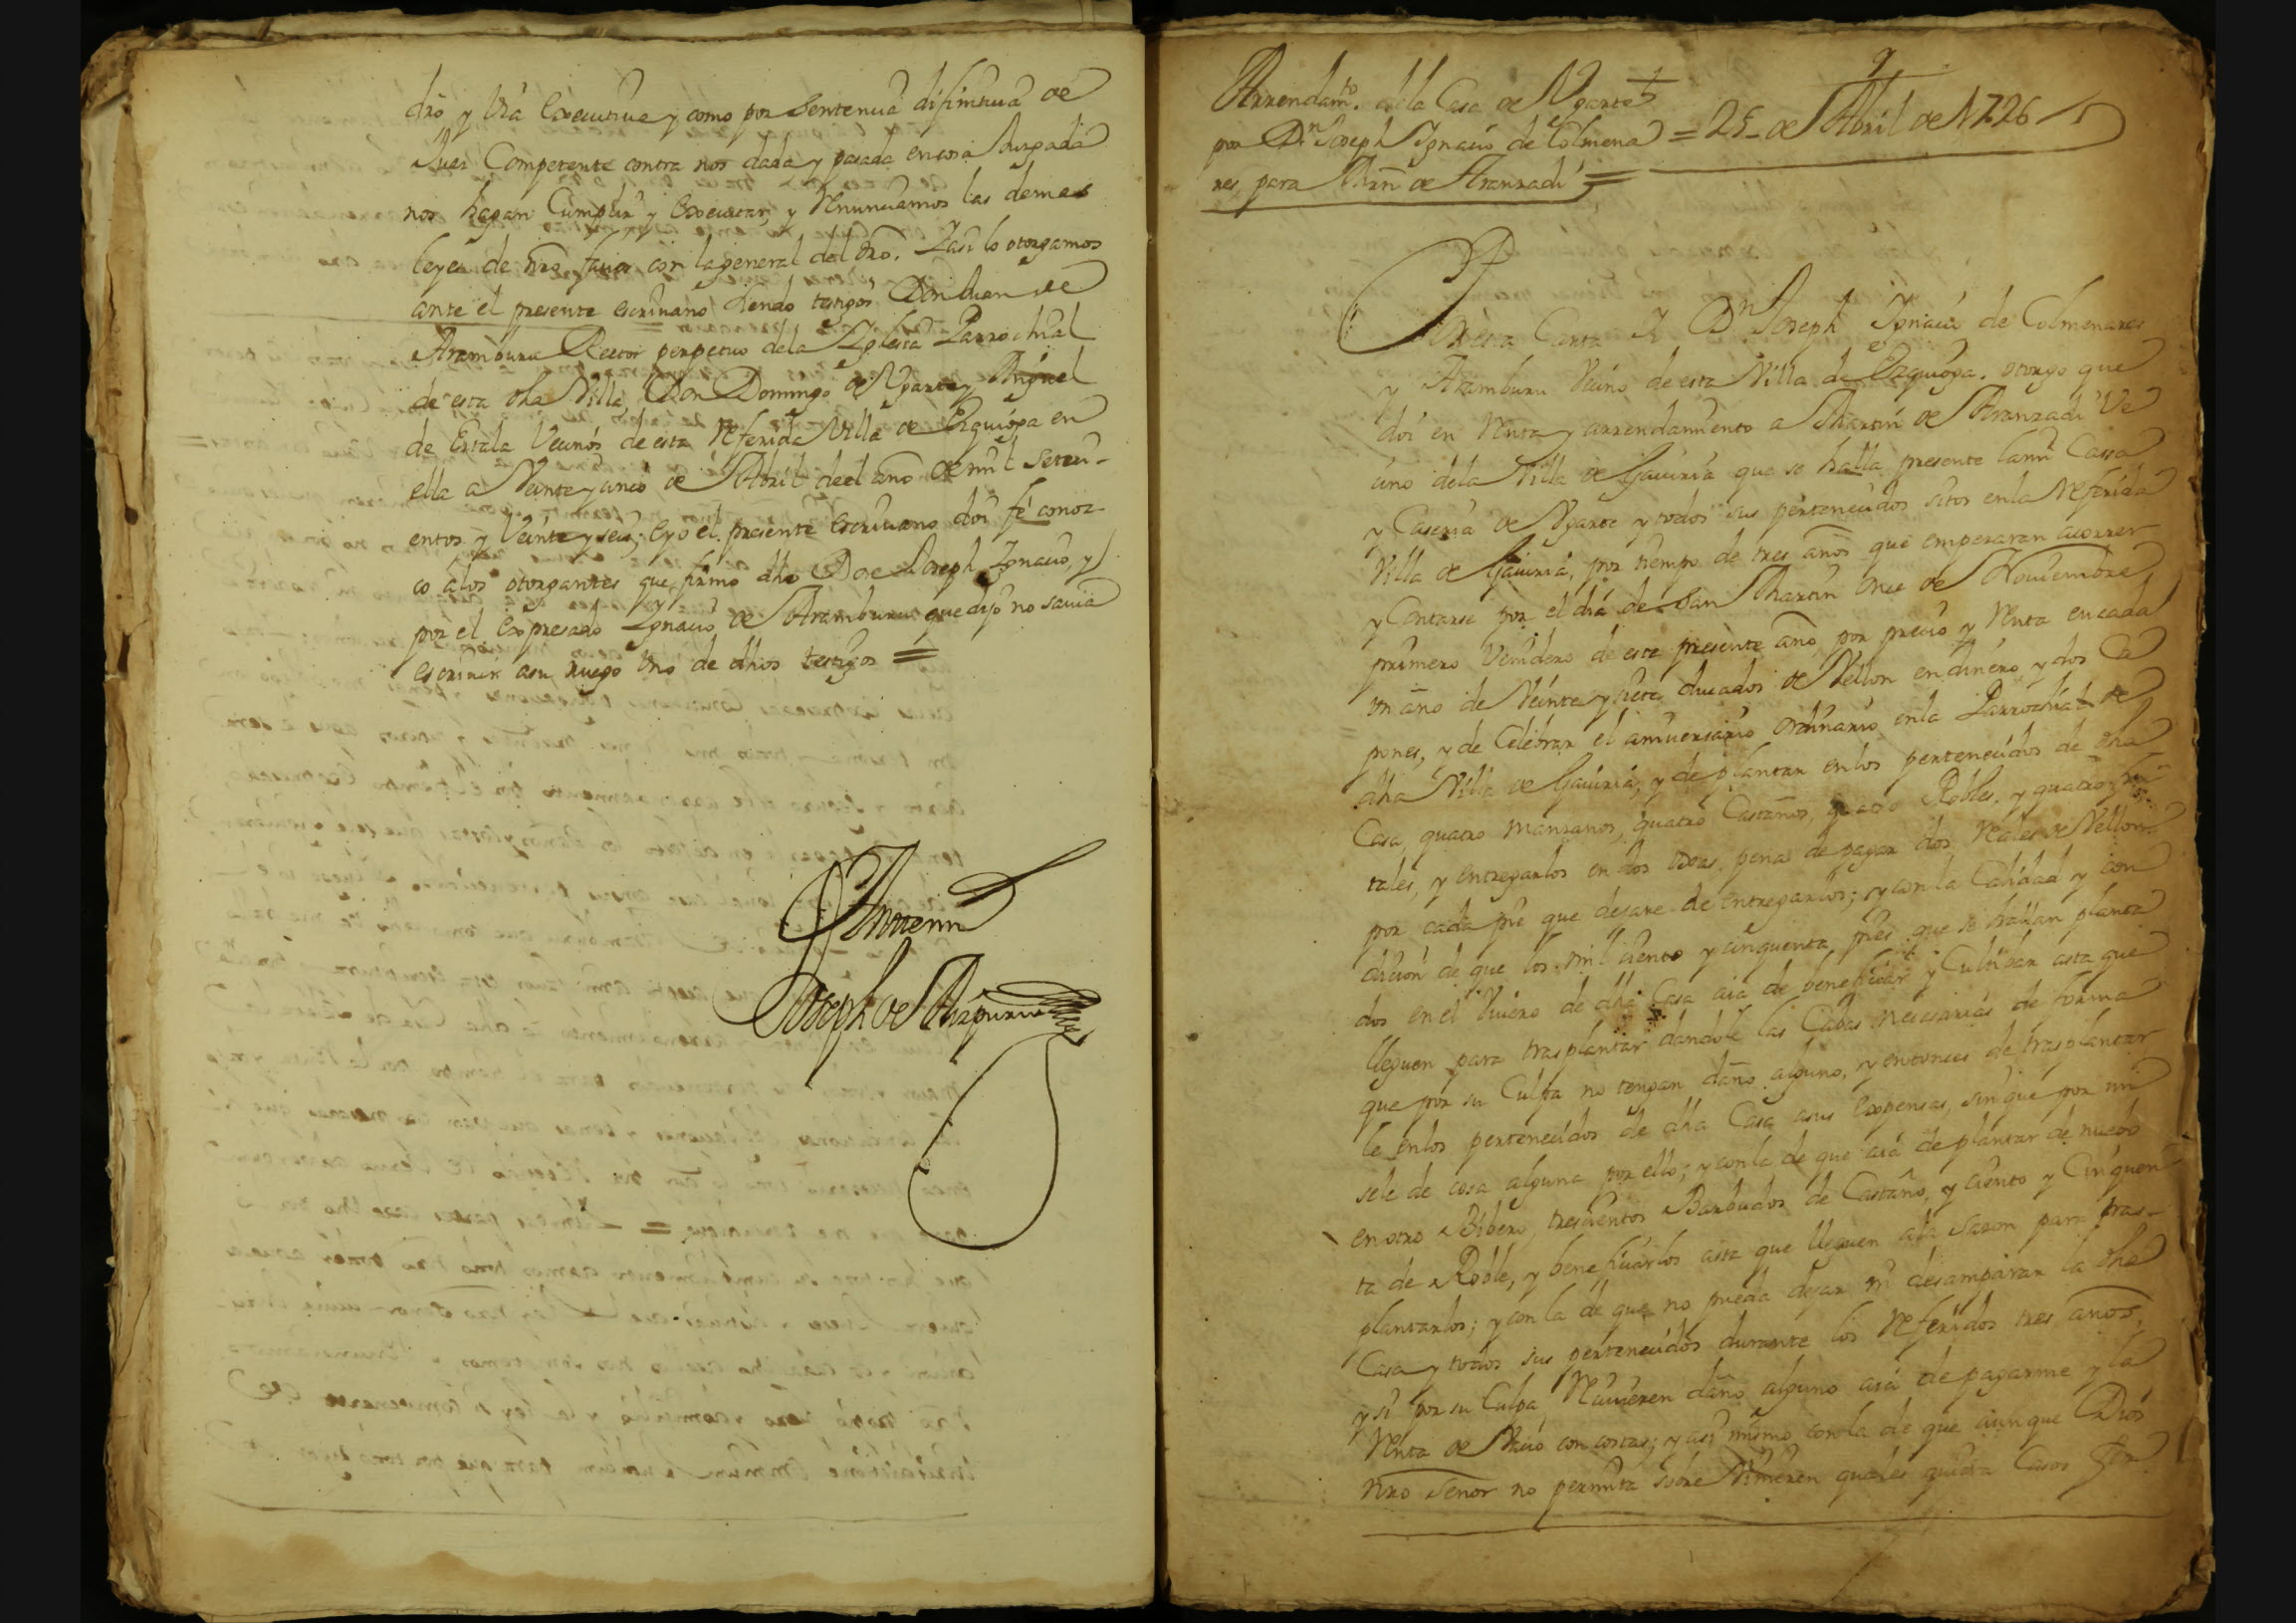 dro y Via Executiva y como por Sentencia difinitiva de
Juez Competente contra nos dada y pasada en cosa Juzgada
nos hagan Cumplir y Executar, y Renunciamos las demas
leyes de nro favor con la general del dro. Y asi lo otorgamos
ante el presente escrivano siendo testigos Don Juan de
Aramburu Rector perpetuo de la Yglesia Parrochial
de esta dha Villa, Don Domingo de Ugarte y Miguel
de Estala Vecinos de esta referida Villa de Ezquioga en
ella a Veinte y cinco de Abril de el año de mil setezi-
entos y Veinte y seis; e yo el presente escrivano doi fé conoz-
co a los otorgantes que firmo dho Don Joseph Ygnacio, y
por el expresado Ygnacio de Aramburu que dijo no savia
escrivir a su ruego Uno de dhos testigos =
Ante mi
Joseph de Aizpuru
Arrendamto. de la Casa de Ugarte
por Dn Joseph Ygnacio de Colmena = 25 de Abril de 1726
res, para Mrn de Aranzadi =
9
Por esta Carta Yo Dn Joseph Ygnacio de Colmenares
y Aramburu Vecino de esta Villa de Ezquioga. otorgo que
doi en renta y arrendamiento a Martin de Aranzadi Ve
cino de la Villa de Gaviria que se halla presente la mi Cassa
y Caseria de Ugarte y todos sus pertenecidos sitos en la referida
Villa de Gaviria, por tiempo de tres años que empezaran a correr
y Contarse por el dia de San Martin Onze de Noviembre
primero Venidero de este presente año, por precio y renta en cada
un año de Veinte y siete ducados de Vellon en dinero y dos Ca
pones, y de Celebrar el aniversario ordinario en la Parrochial de
dha Villa de Gaviria, y de plantar en los pertenecidos de dha
Casa, quatro manzanos, quatro Castaños, quatro Robles, y quatro fru-
tales, y entregarlos en dos ojas, pena de pagar dos reales de Vellon
por cada pie que dejare de entregarlos; y con la Calidad y con
dicion de que los mil ciento y cinquenta pies que se hallan planta
dos en el Vivero de dha Casa aia de beneficiar y Cultibar asta que
lleguen para trasplantar dandole las Cabas necesarias de forma
que por su Culpa no tengan daño alguno, y entonces de trasplantar
le en los pertenecidos de dha Casa a sus Expensas, sin que por mi
sele de cosa alguna por ello; y con la de que aia de plantar de nuebo
en otro Bibero trescientos Barbudos de Castaño, y ciento y Cinquen-
ta de Roble, y beneficiarlos asta que lleguen a la sazon para tras-
plantarlos; y con la de que no pueda dejar ni desamparar la dha
Casa y todos sus pertenecidos durante los referidos tres años,
y si por su Culpa recivieren daño alguno aia de pagarme y la
renta de Vacio con costas; y asi mismo con la de que aunque Dios
nro Señor no permita sobre Vinieren quales quiera Casos